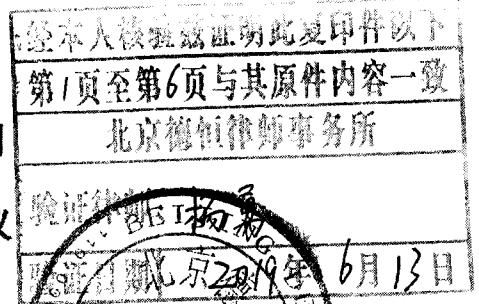 经本人核验兹证明此复印件以下
第1页至第6页与其原件内容一致
北京德恒律师事务所
验证律师
BEIJING
验证日期 2019年6月13日
北京